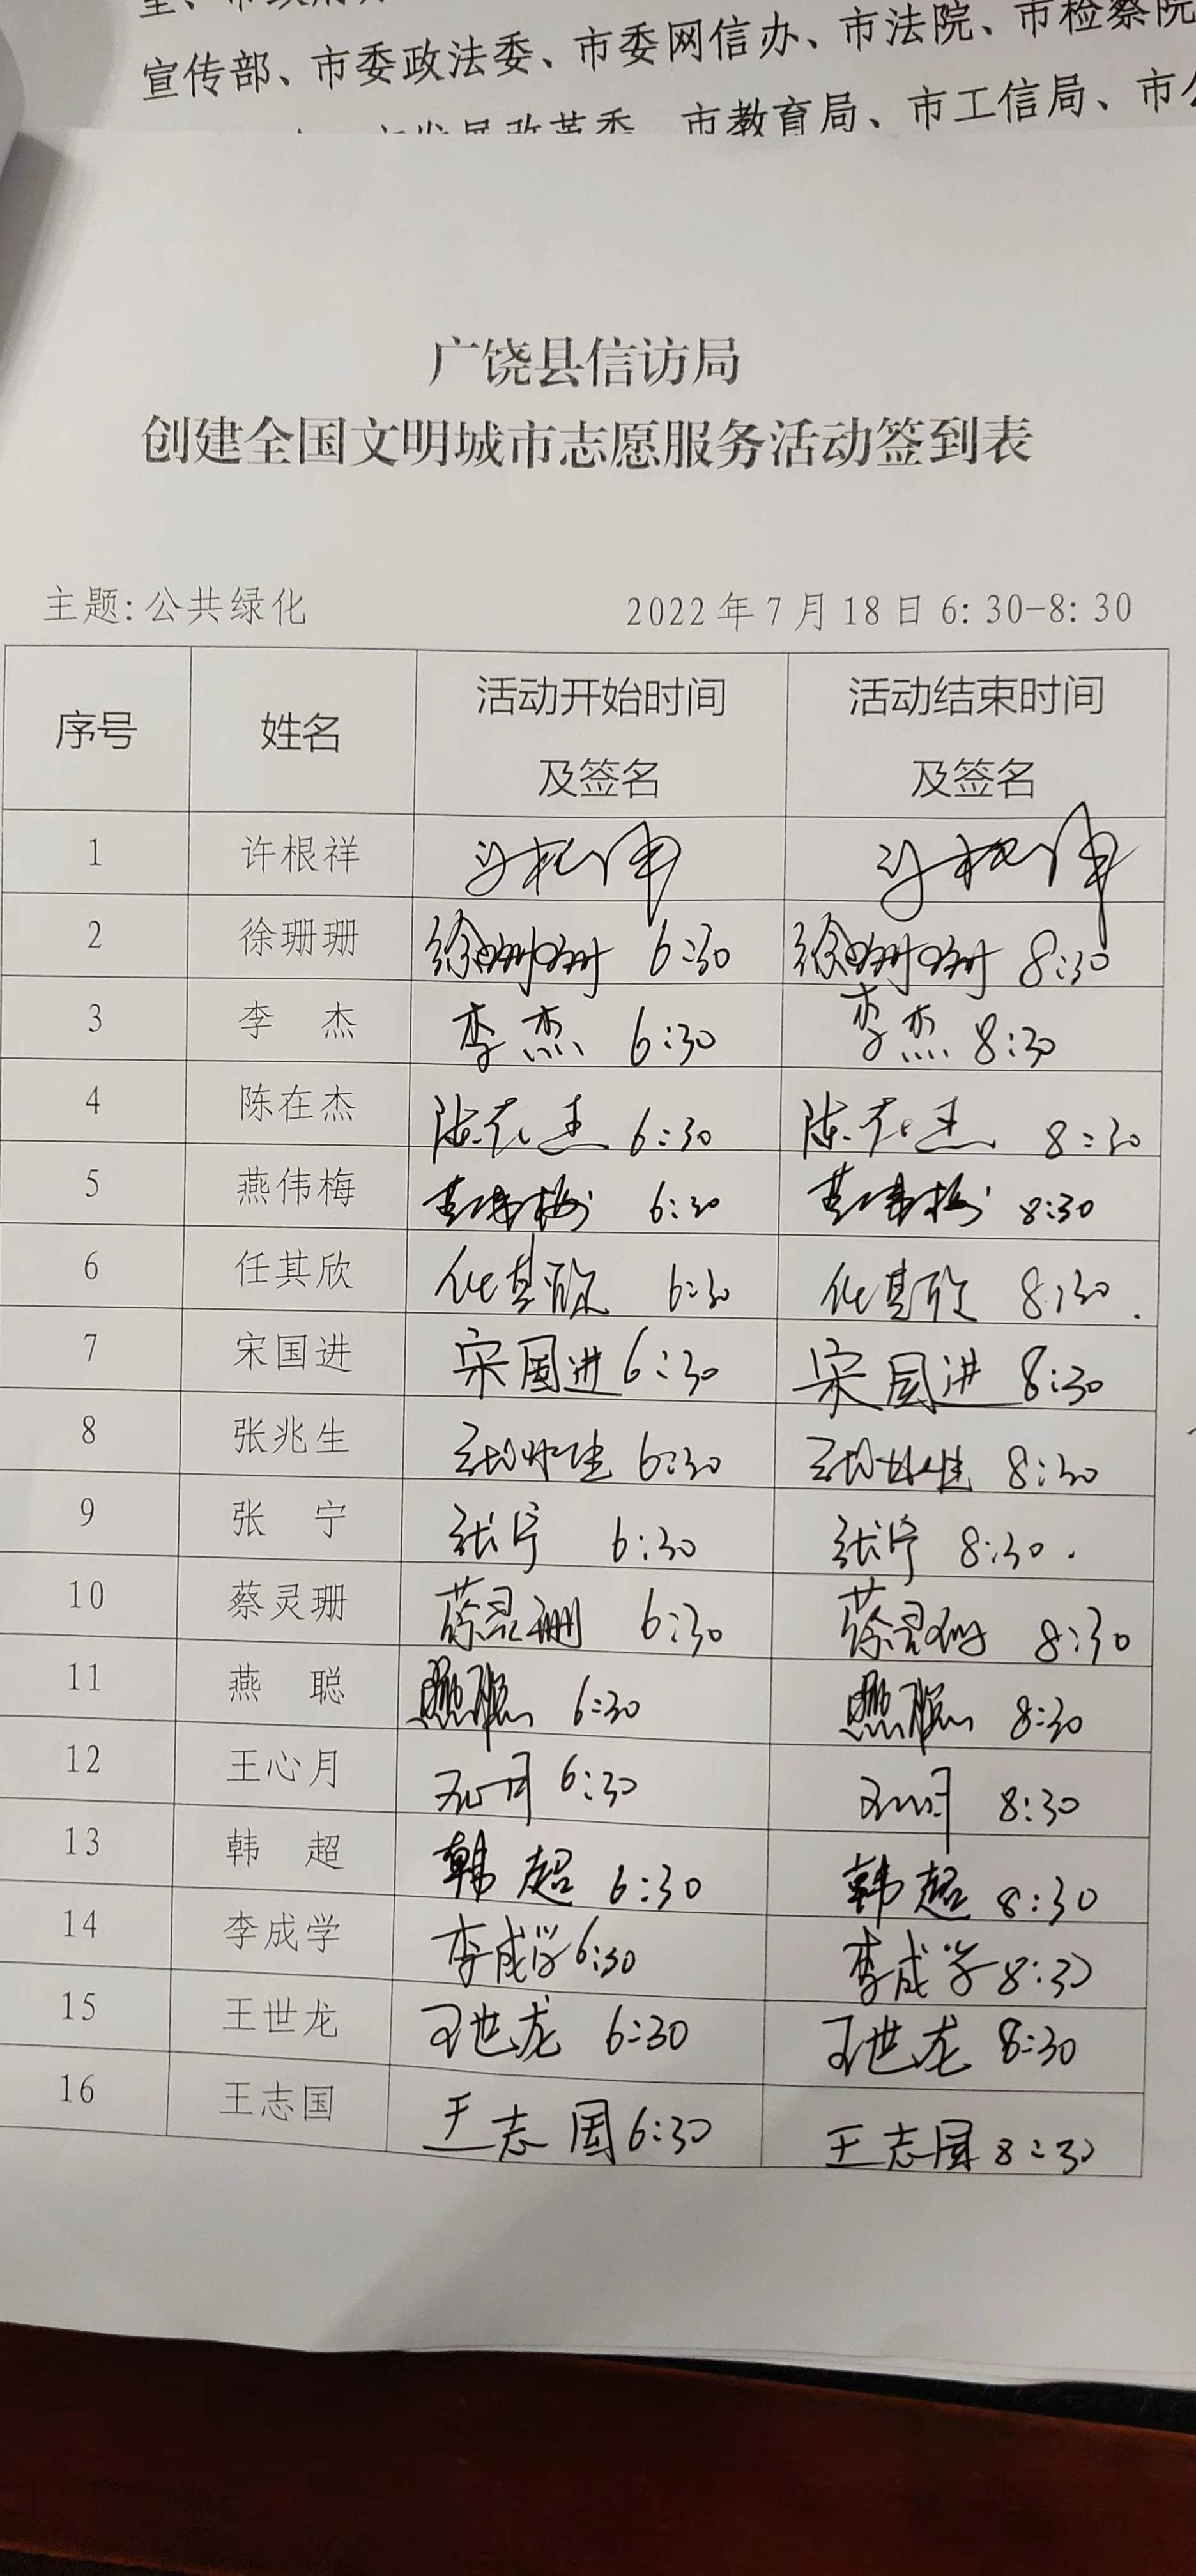 宣传部、市委政法委、市委网信办、市法院、市检察院
市发展改革委、市教育局、市工信局、市公
广饶县信访局
创建全国文明城市志愿服务活动签到表
主题:公共绿化 2022年7月18日6:30-8:30
序号 姓名 活动开始时间及签名 活动结束时间及签名
1 许根祥
2 徐珊珊 徐珊珊 6:30 徐珊珊 8:30
3 李 杰 李杰 6:30 李杰 8:30
4 陈在杰 陈在杰 6:30 陈在杰 8:30
5 燕伟梅 燕伟梅 6:30 燕伟梅 8:30
6 任其欣 任其欣 6:30 任其欣 8:30
7 宋国进 宋国进 6:30 宋国进 8:30
8 张兆生 张兆生 6:30 张兆生 8:30
9 张 宁 张宁 6:30 张宁 8:30
10 蔡灵珊 蔡灵珊 6:30 蔡灵珊 8:30
11 燕 聪 燕聪 6:30 燕聪 8:30
12 王心月 王心月 6:30 王心月 8:30
13 韩 超 韩超 6:30 韩超 8:30
14 李成学 李成学 6:30 李成学 8:30
15 王世龙 王世龙 6:30 王世龙 8:30
16 王志国 王志国 6:30 王志国 8:30